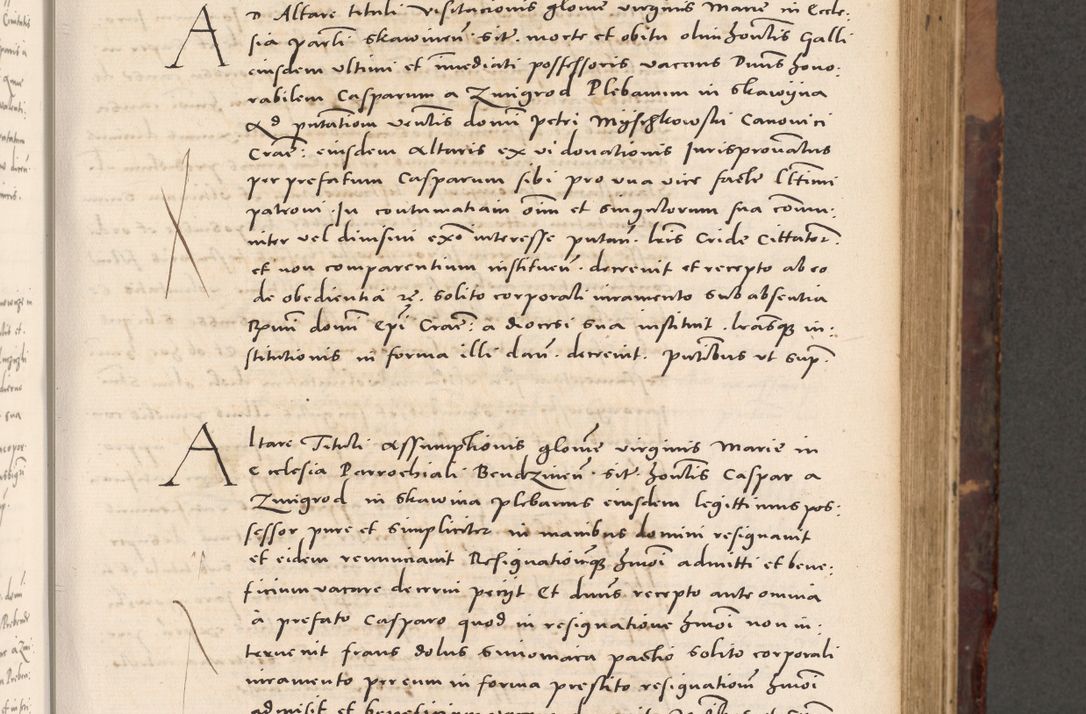 AD Altare tituli Visitacionis gloriose virginis Marie in Eccle:
sia paroli Skawinen̄ sit. morte et obitu olim honestis Galli
eiusdem ultimi et īmediati possessoris vacans Dnus hono:
rabilem Casparum a Zmigrod Plebanum in Skawyna
Ad pntationem ven̄lis domi Petri Myschkowski Canonici
Crac: eiusdem Altaris ex vi donationis Jurispronatus
per prefatum Casparum sibi pro una vice facte Lttimi
patroni. In contumatiam oīm et singulorum sua cōmu:
niter vel divisim exō interesse putan̄. lris Cride Cittator.
et non comparentium instituen̄. decrevit et recepto ab eo
de obedientia rc̄. solito corporali iuramento sub absentia
Rymi domi Epi Crac: a diocesi sua instituit. lrasq̄ in:
stitutionis in forma illi dari. decrevit. pntibus ut sup.
Altare Tituli Assumptionis gloriose virginis Marie in
Ecclesia Parrochiali Bendzinen̄. sit. honestis Caspar a
Zmigrod in Skawina plebanus eiusdem legittimus pos:
sessor pure et simpliciter in manibus domini resignavit
et eidem renunciavit Resignationēq̄ hmōi admitti et bene:
ficium vacare decerni peciit Et dnus recepto ante omnia
à prefato Casparo quod in resignatione hmōi non in:
tervenit fraus dolus simoniaca pactio solito corporali
iuramento per eum in forma prestito resignationē hmōi
admisit et beneficium